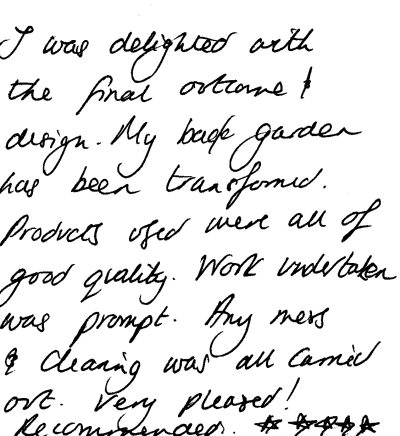 I was delighted with
the final outcome &
design. My back garden
has been transformed.
Products used were all of
good quality. Work undertaken
was prompt. Any mess
& cleaning was all carried
out. Very pleased!
Recommended. ★ ★★★★